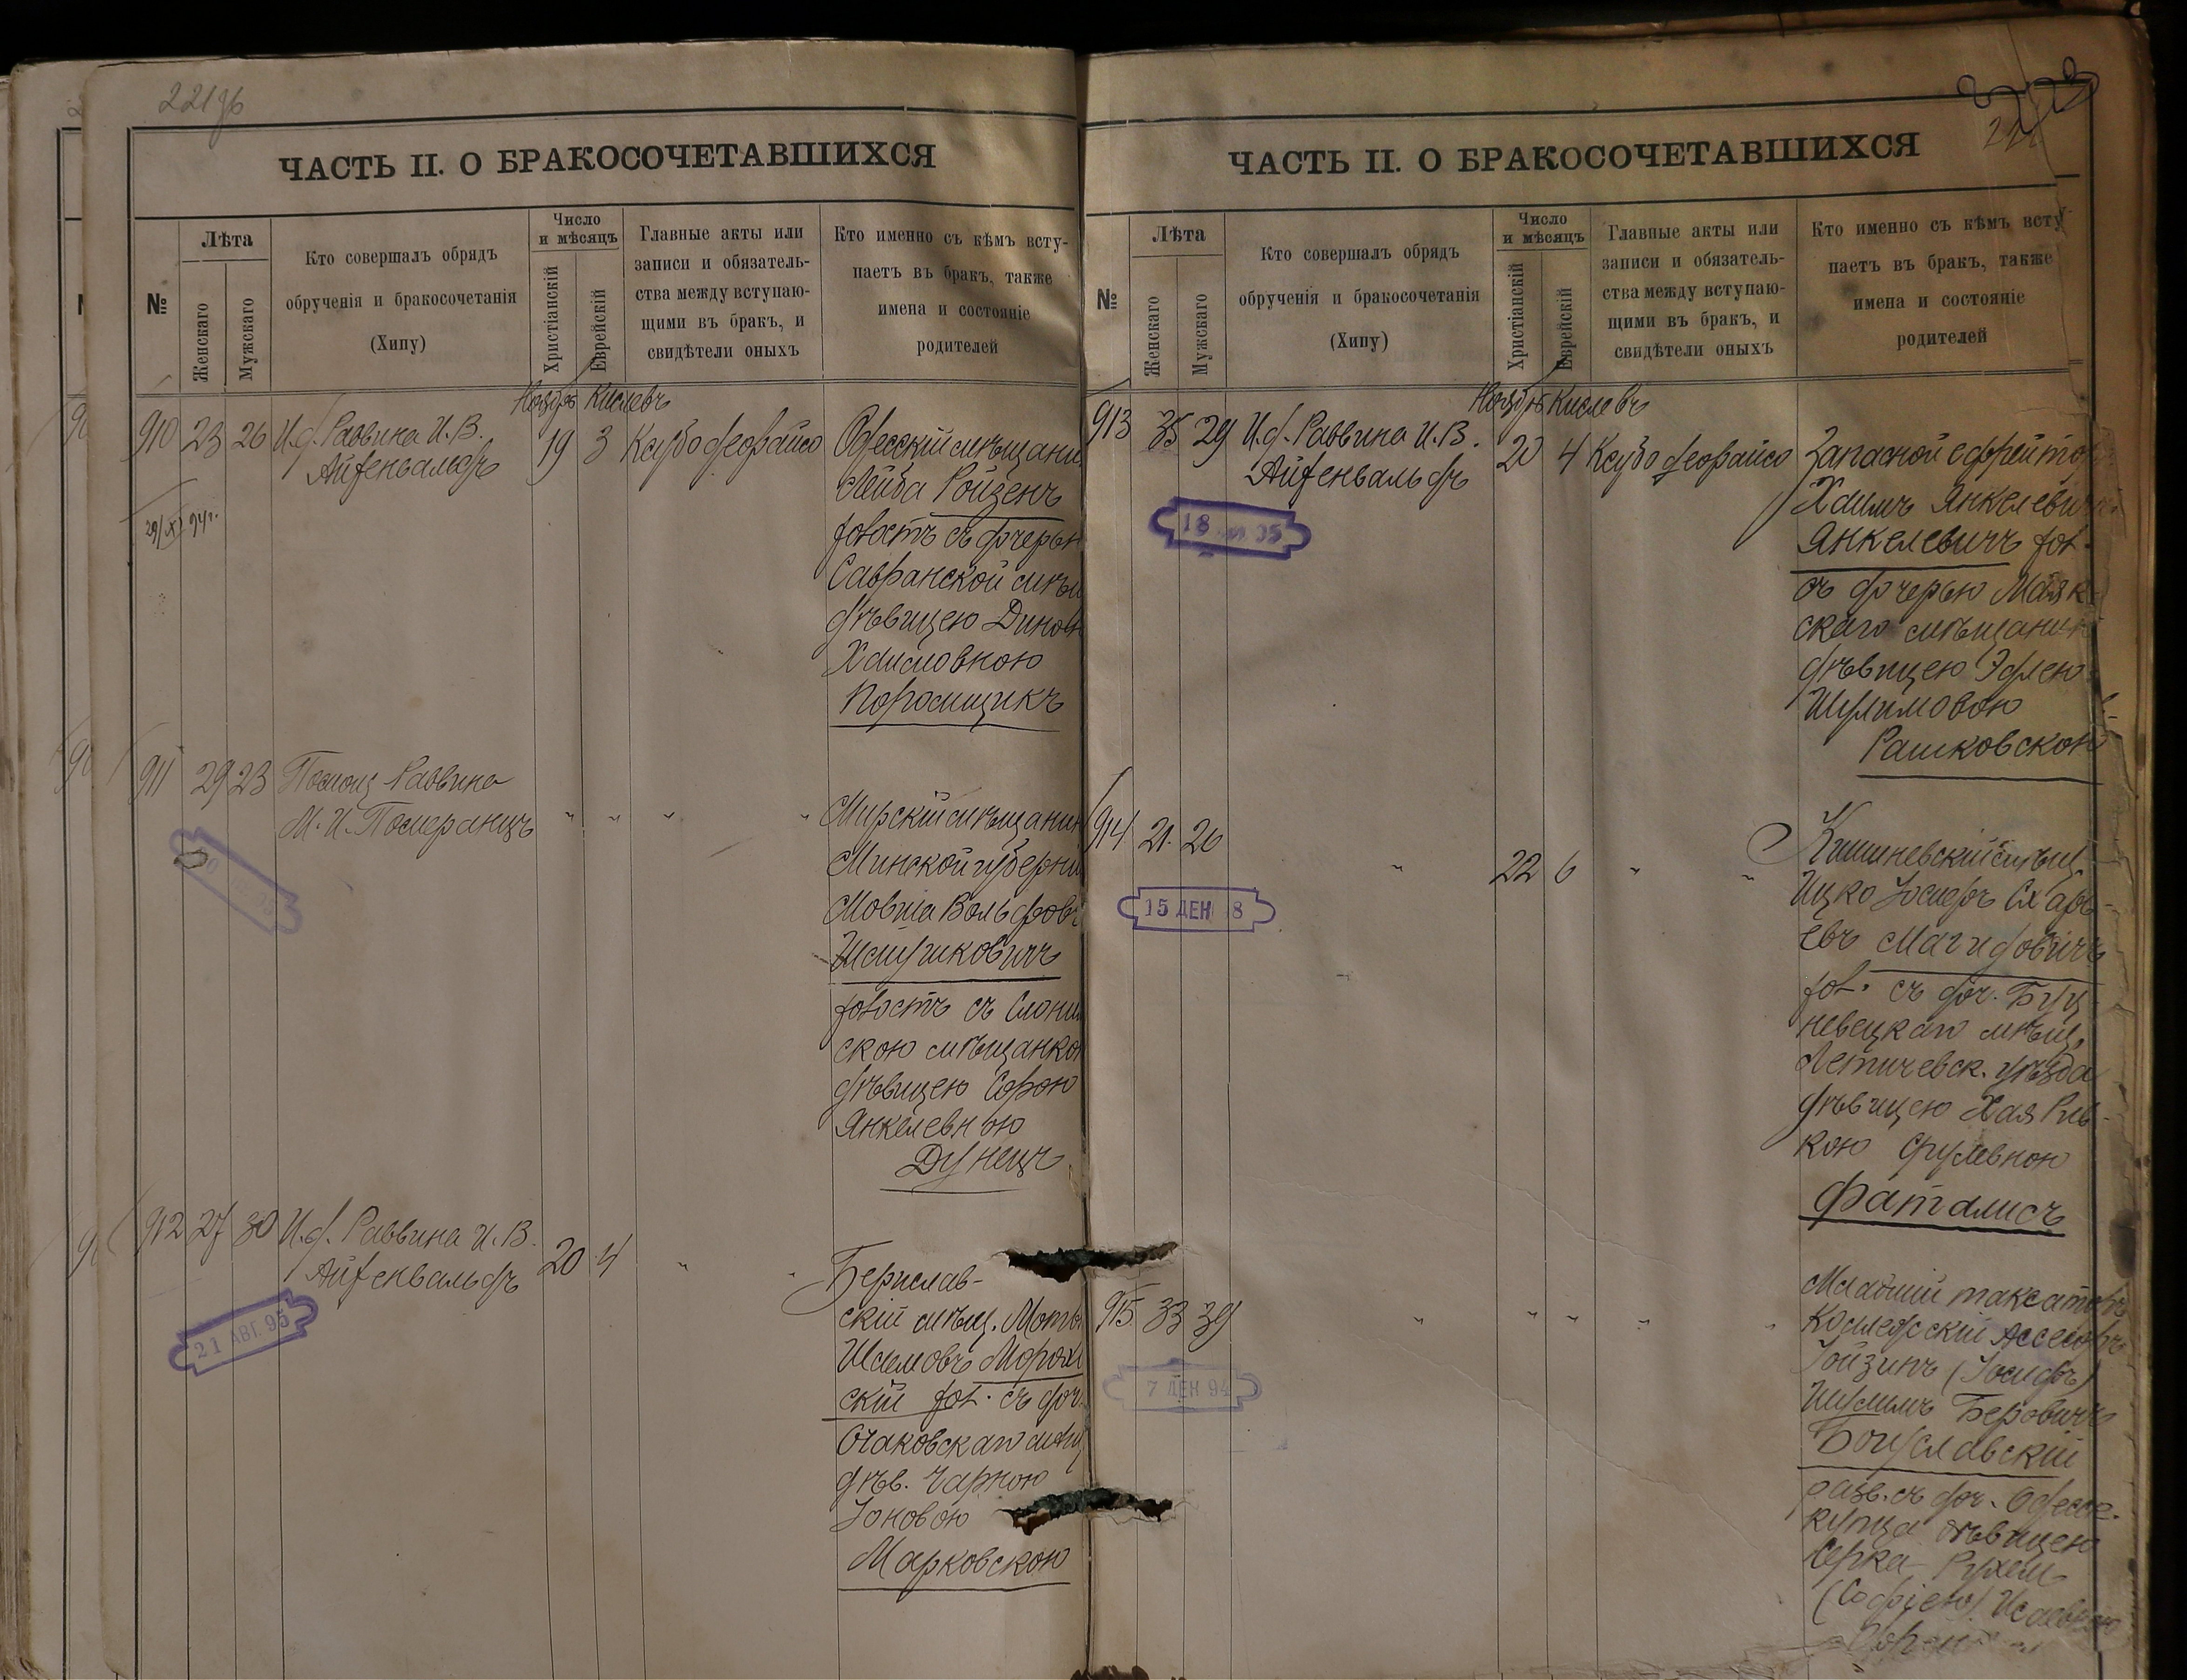 221об
ЧАСТЬ II. О БРАКОСОЧЕТАВШИХСЯ
№
Лѣта
Женскаго
Мужскаго
Кто совершалъ обрядъ
обрученія и бракосочетанія
(Хипу)
Число
и мѣсяцъ
Христіанскій
Еврейскій
Главные акты или
записи и обязатель-
ства между вступаю-
щими въ бракъ, и
свидѣтели оныхъ
Кто именно съ кѣмъ всту-
паетъ въ бракъ, также
имена и состояніе
родителей
Ноябрь Кислевъ
910 23 26 И.д. Раввина И.В.
Айзенвальдъ
19 3 Ксубо деорайсо
Одесскій мѣщани
Лейба Ройзенъ
холостъ съ дочерью
Савранской мѣщ
дѣвицею Диною
Хаимовною
911 29 23 Помощ Раввина
М. И. Померанцъ
" " " "
Мирскій мѣщанин
Минской губерни
Мовша Вольфов
Шмушковичъ
холостъ съ Слоним
скою мѣщанкою
дѣвицею Сорою
Янкелевною
Дунецъ
912 27 30 И.д. Раввина И.В.
Айзенвальдъ
20 4 " "
Берислав-
скій мѣщ. Мотья
скій хол. съ доч.
Очаковскаго мѣщ
дѣв. Чарною
Іоновою
Марковскою
21 АВГ. 95
ЧАСТЬ II. О БРАКОСОЧЕТАВШИХСЯ
№
Лѣта
Женскаго
Мужскаго
Кто совершалъ обрядъ
обрученія и бракосочетанія
(Хипу)
Число
и мѣсяцъ
Христіанскій
Еврейскій
Главные акты или
записи и обязатель-
ства между вступаю-
щими въ бракъ, и
свидѣтели оныхъ
Кто именно съ кѣмъ всту
паетъ въ бракъ, также
имена и состояніе
родителей
Ноябрь Кислевъ
913 35 29 И.д. Раввина И.В.
Айзенвальдъ
20 4 Ксубо деорайсо
Запасной ефрейтор
Хаимъ Янкелевичъ
Янкелевичъ хол.
съ дочерью Маяк-
скаго мѣщанина
дѣвицею Эдлею
Шулимовою
Рашковскою
914 21 26
" 22 6 " "
15 ДЕН 8
Кишиневскій мѣщ
Ицко Іосифъ
евъ Магидовичъ
хол. съ доч.
невецкаго мѣщ.
Летичевск. уѣзда
дѣвицею Хая Рив-
кою Срулевною
Фаталисъ
915 33 39
" " " " "
7 ДЕН 94
Младшій таксаторъ
Коллежскій Ассесоръ
(Іосифъ)
Беровичъ
Богуславскій
разв. съ доч. Одесск.
купца дѣвицею
Серка Рухель
(Софіею) Исаевною